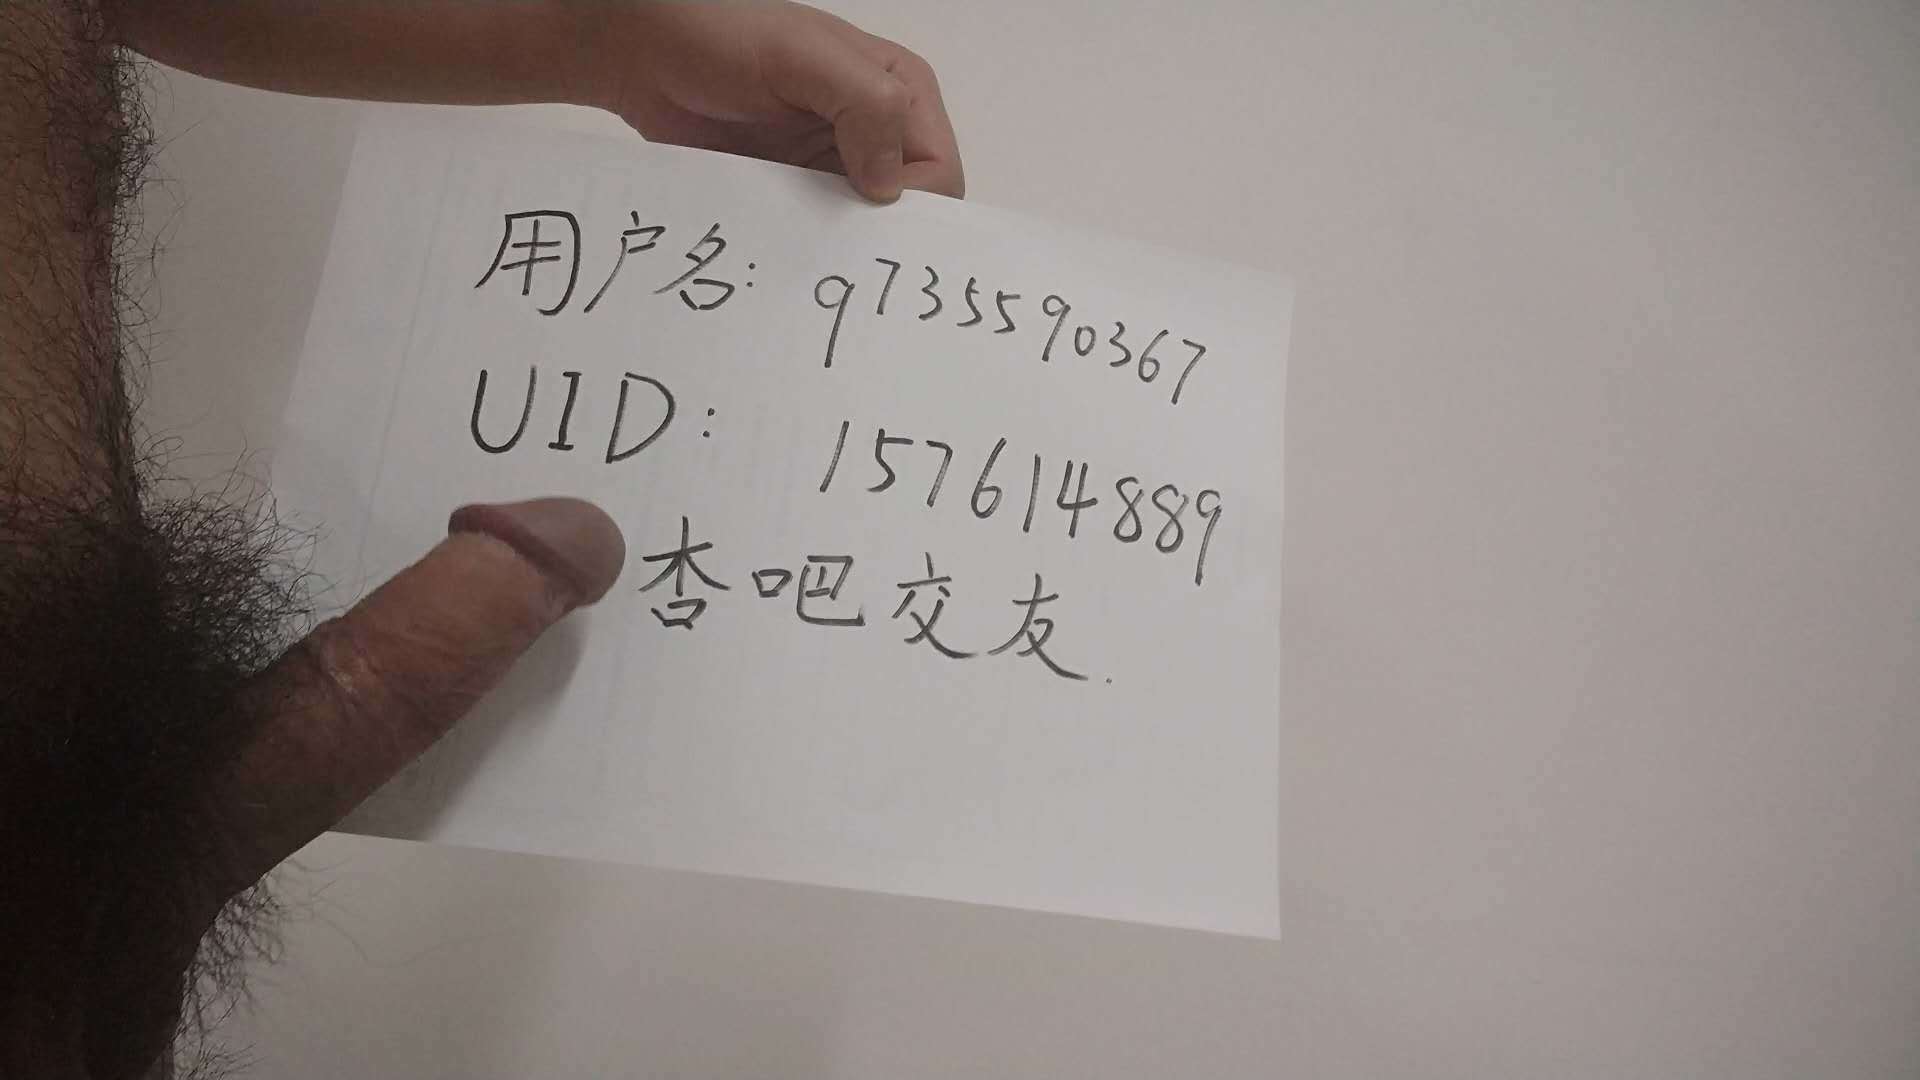 用户名: q735590367
UID: 157614889
杏吧交友.